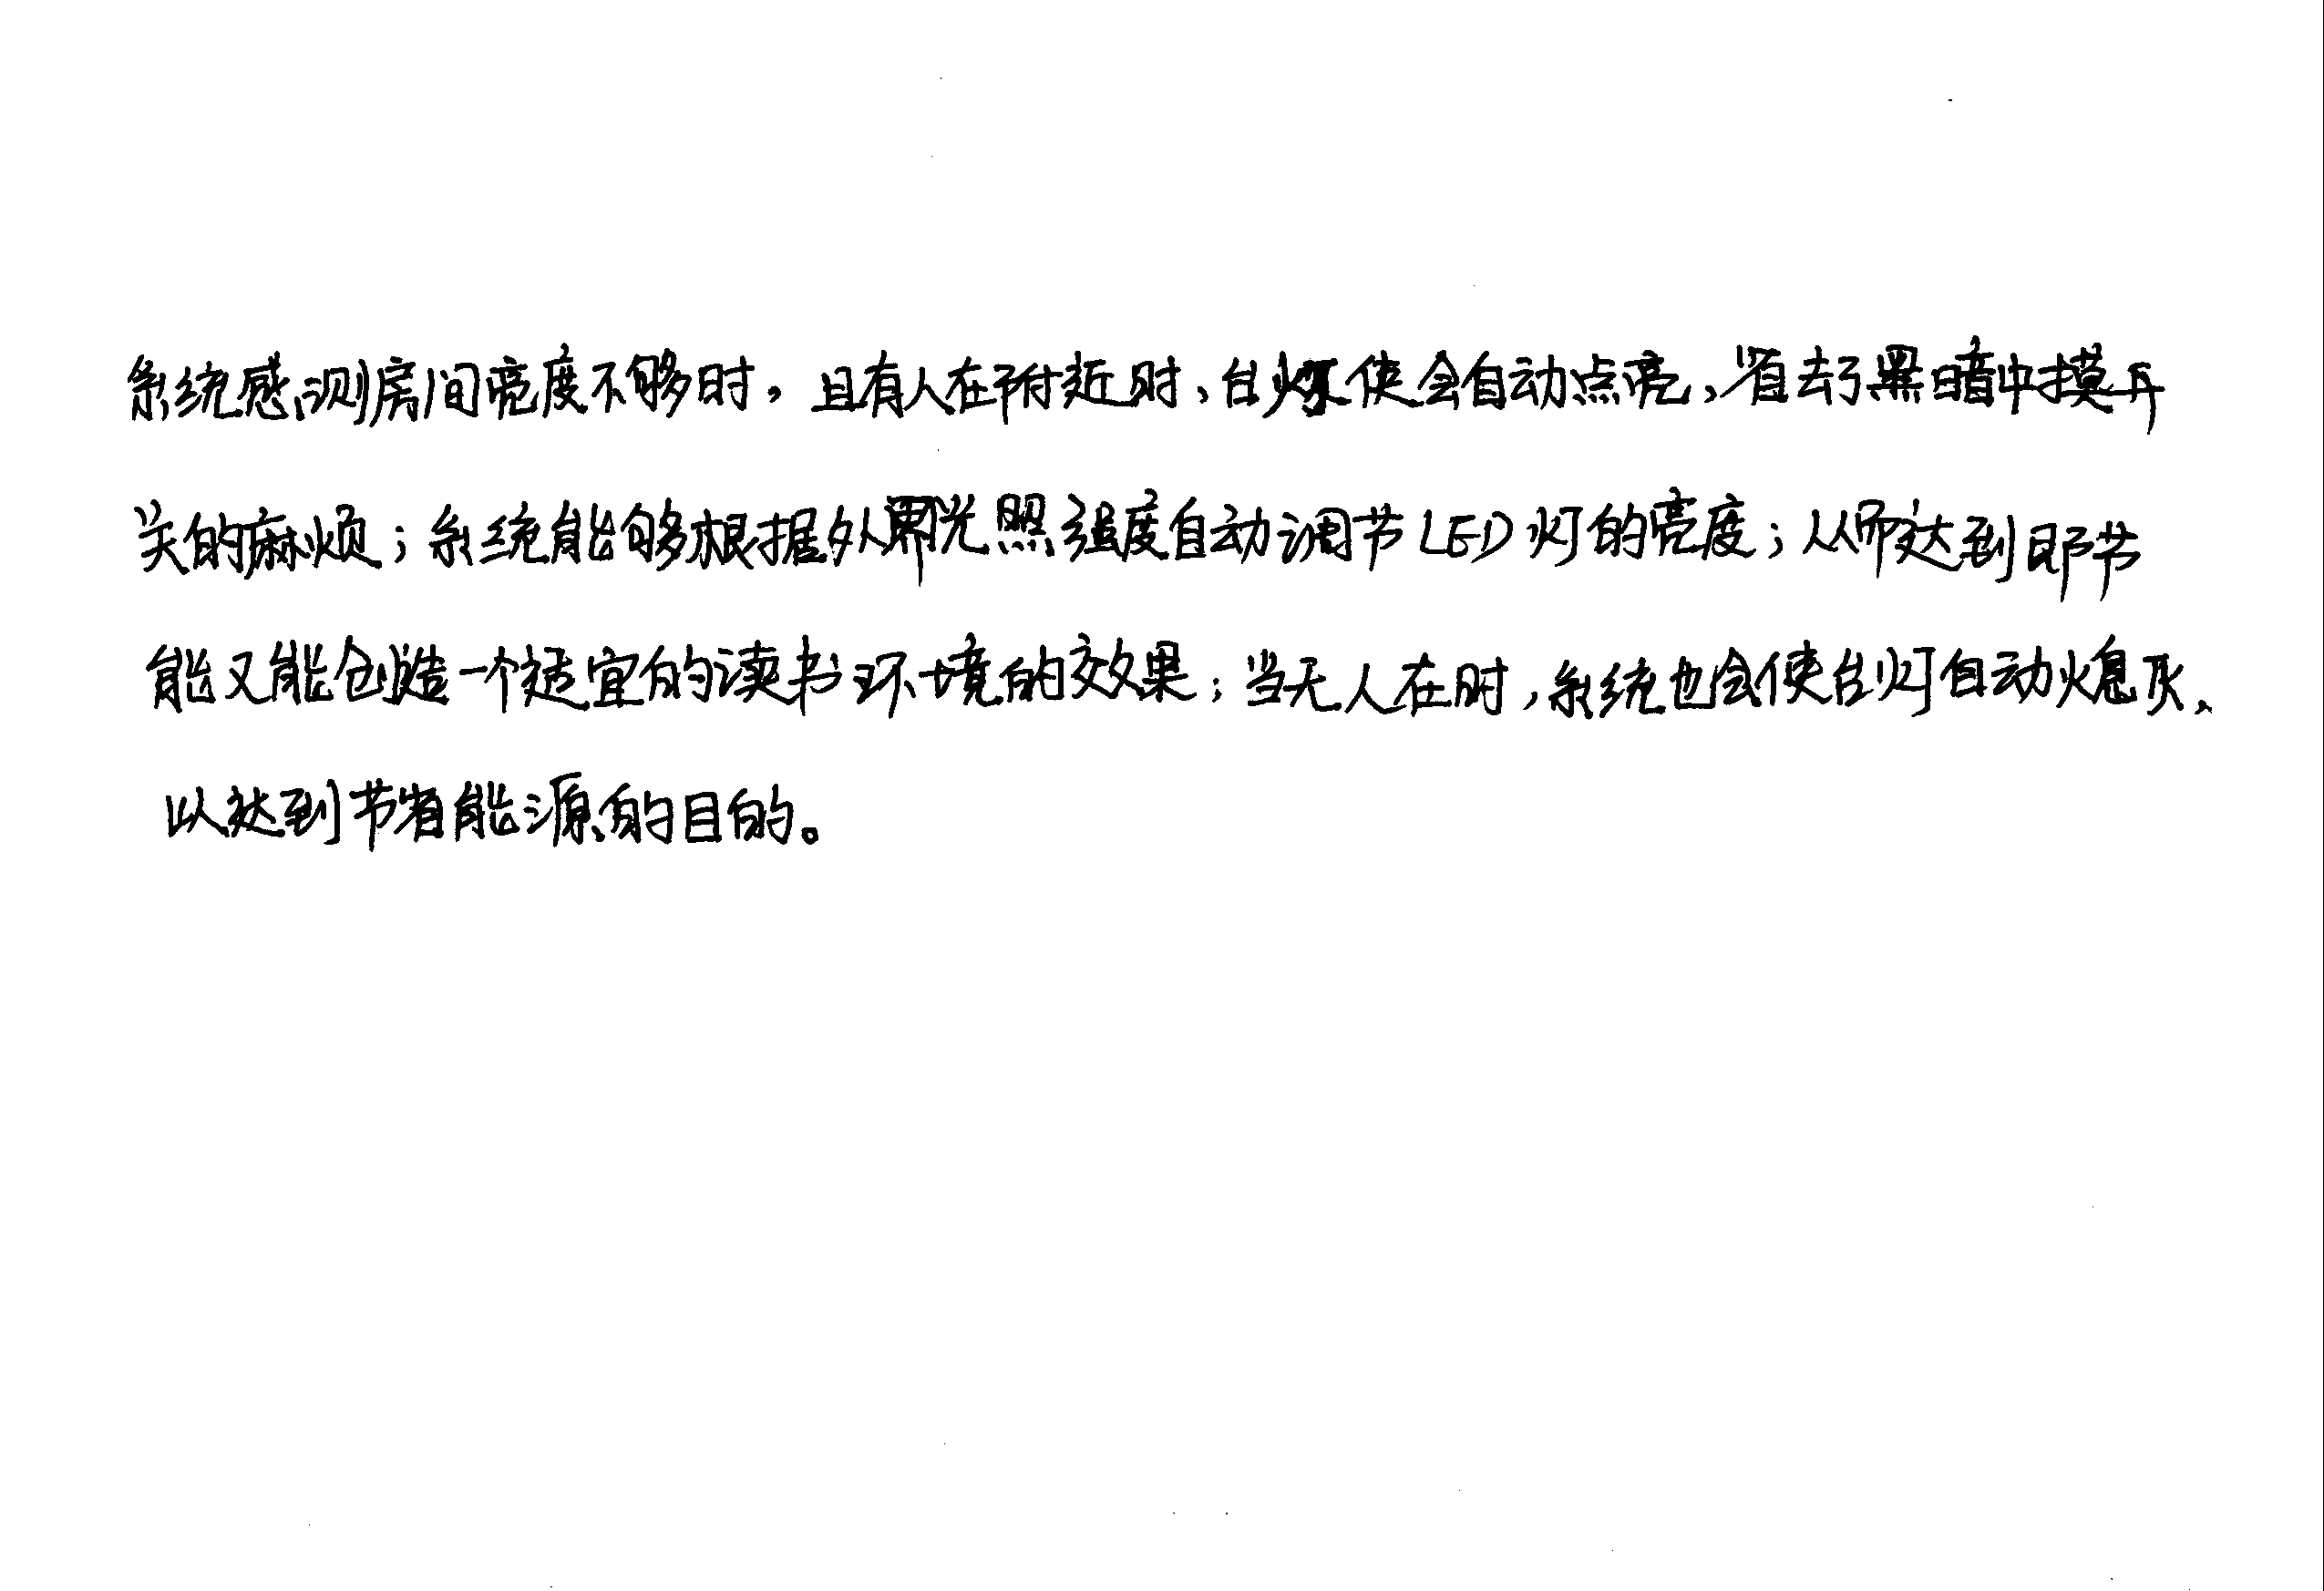 系统感测房间亮度不够时，且有人在附近时，台灯便会自动点亮，省去了黑暗中摸开
关的麻烦；系统能够根据外界光照强度自动调节LED灯的亮度；从而达到即节
能又能创造一个适宜的读书环境的效果；当无人在时，系统也会使台灯自动熄灭，
以达到节省能源的目的。